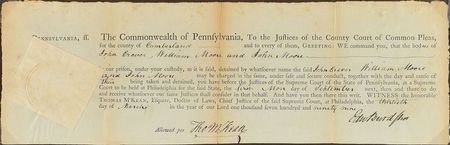 Pennsylvania, ff.
The Commonwealth of Pennsylvania, To the Justices of the County Court of Common Pleas,
for the county of Cumberland and to every of them, Greeting: WE command you, that the bodies of
John Crever, William Moore and John Moore
our prison, under your custody, as it is said, detained by whatsoever name the said John Crever William Moore
and John Moore may be charged in the same, under safe and secure conduct, together with the day and cause of
being taken and detained, you have before the Justices of the Supreme Court of the State of Pennsylvania, at a Supreme
Court to be held at Philadelphia for the said State, the first Monday of September next, then and there to do
and receive whatsoever our said Justices shall consider in that behalf. And have you then there this writ. WITNESS the honorable
Thomas M'Kean, Esquire, Doctor of Laws, Chief Justice of the said Supreme Court, at Philadelphia, the thirtieth
day of March in the year of our Lord one thousand seven hundred and ninety nine
Edw Burd
Allowed per Tho M:Kean